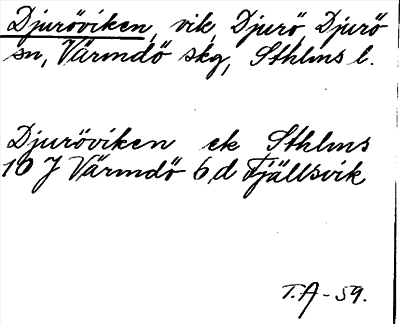 Djuröviken, vik, Djurö, Djurö
sn, Värmdö skg, Sthlms l.
Djuröviken ek Sthlms
10 J Värmdö 6 d Fjällsvik
T.A-59.